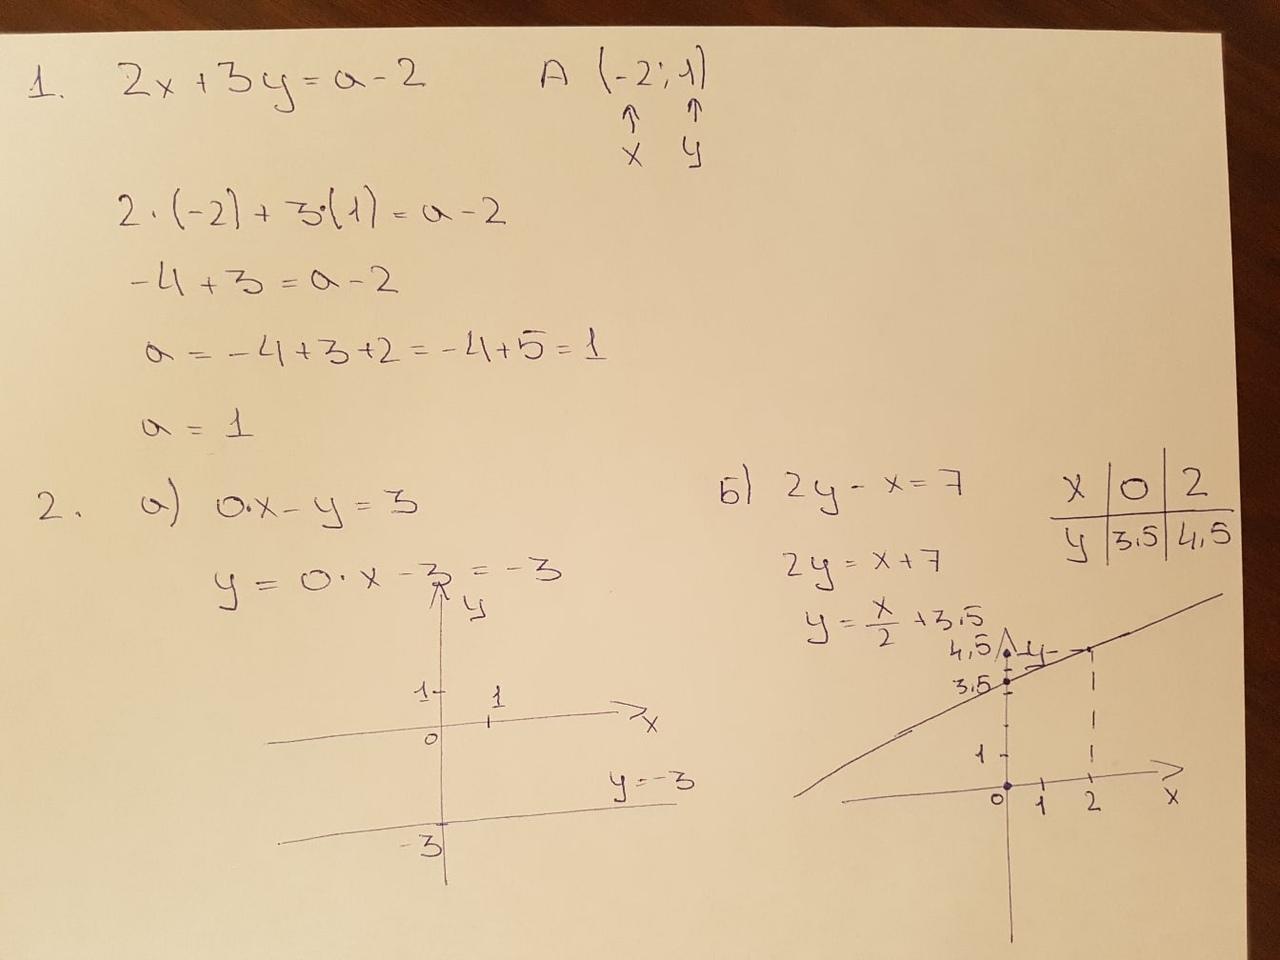 1. 2x+3y=a-2 A (-2;1)
↑ ↑
x y
2·(-2)+3·(1)=a-2
-4+3=a-2
a=-4+3+2=-4+5=1
a=1
2. a) 0·x-y=3
y=0·x-3=-3
y
1 1
0 x
y=-3
-3
Б) 2y-x=7
x 0 2
y 3.5 4,5
2y=x+7
y=x/2+3.5
4,5 y
3.5
1
0 1 2 x